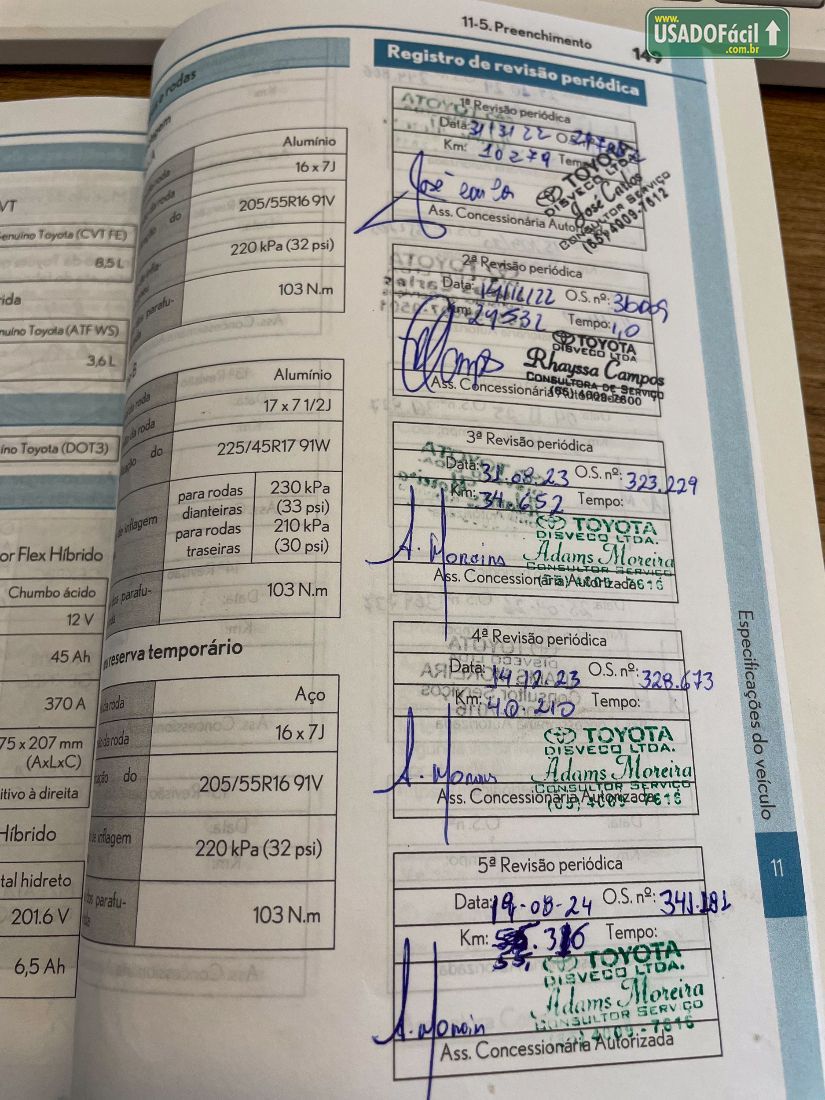 www.
USADOFácil
.com.br
11-5. Preenchimento
149
VT
Genuíno Toyota (CVT FE)
8,5 L
rida
nuíno Toyota (ATF WS)
3,6 L
íno Toyota (DOT3)
or Flex Híbrido
Chumbo ácido
12 V
45 Ah
370 A
75 x 207 mm
(AxLxC)
itivo à direita
Híbrido
tal hidreto
201.6 V
6,5 Ah
e rodas
Alumínio
16 x 7J
do
205/55R16 91V
220 kPa (32 psi)
parafu-
103 N.m
Alumínio
da roda
17 x 7 1/2J
do
225/45R17 91W
de inflagem
para rodas
dianteiras
230 kPa
(33 psi)
para rodas
traseiras
210 kPa
(30 psi)
dos parafu-
103 N.m
reserva temporário
da roda
Aço
da roda
16 x 7J
do
205/55R16 91V
de inflagem
220 kPa (32 psi)
dos parafu-
103 N.m
Registro de revisão periódica
1ª Revisão periódica
Data: 31/31 22 O.S.
Km: 10279
José Carlos
TOYOTA
DISVECO LTDA.
José Carlos
CONSULTOR SERVIÇO
(65) 4009-7612
Ass. Concessionária
2ª Revisão periódica
Data: 19/12/22 O.S. nº: 36009
Km: 24532 Tempo: 1,0
Campos
TOYOTA
DISVECO LTDA
Rhayssa Campos
CONSULTORA DE SERVIÇO
(65) 4009-7600
Ass. Concessionária
3ª Revisão periódica
Data: 31.08.23 O.S. nº: 323.229
Km: 34.652 Tempo:
A. Moreira
TOYOTA
DISVECO LTDA.
Adams Moreira
CONSULTOR SERVIÇO
(65) 4009-7616
Ass. Concessionária Autorizada
4ª Revisão periódica
Data: 14.12.23 O.S. nº: 328.673
Km: 40.210 Tempo:
A. Moreira
TOYOTA
DISVECO LTDA.
Adams Moreira
CONSULTOR SERVIÇO
(65) 4009-7616
Ass. Concessionária Autorizada
5ª Revisão periódica
Data: 19-08-24 O.S. nº: 341.181
Km: 55.316 Tempo:
55,
A. Moreira
TOYOTA
DISVECO LTDA.
Adams Moreira
CONSULTOR SERVIÇO
4009-7616
Ass. Concessionária Autorizada
Especificações do veículo
11